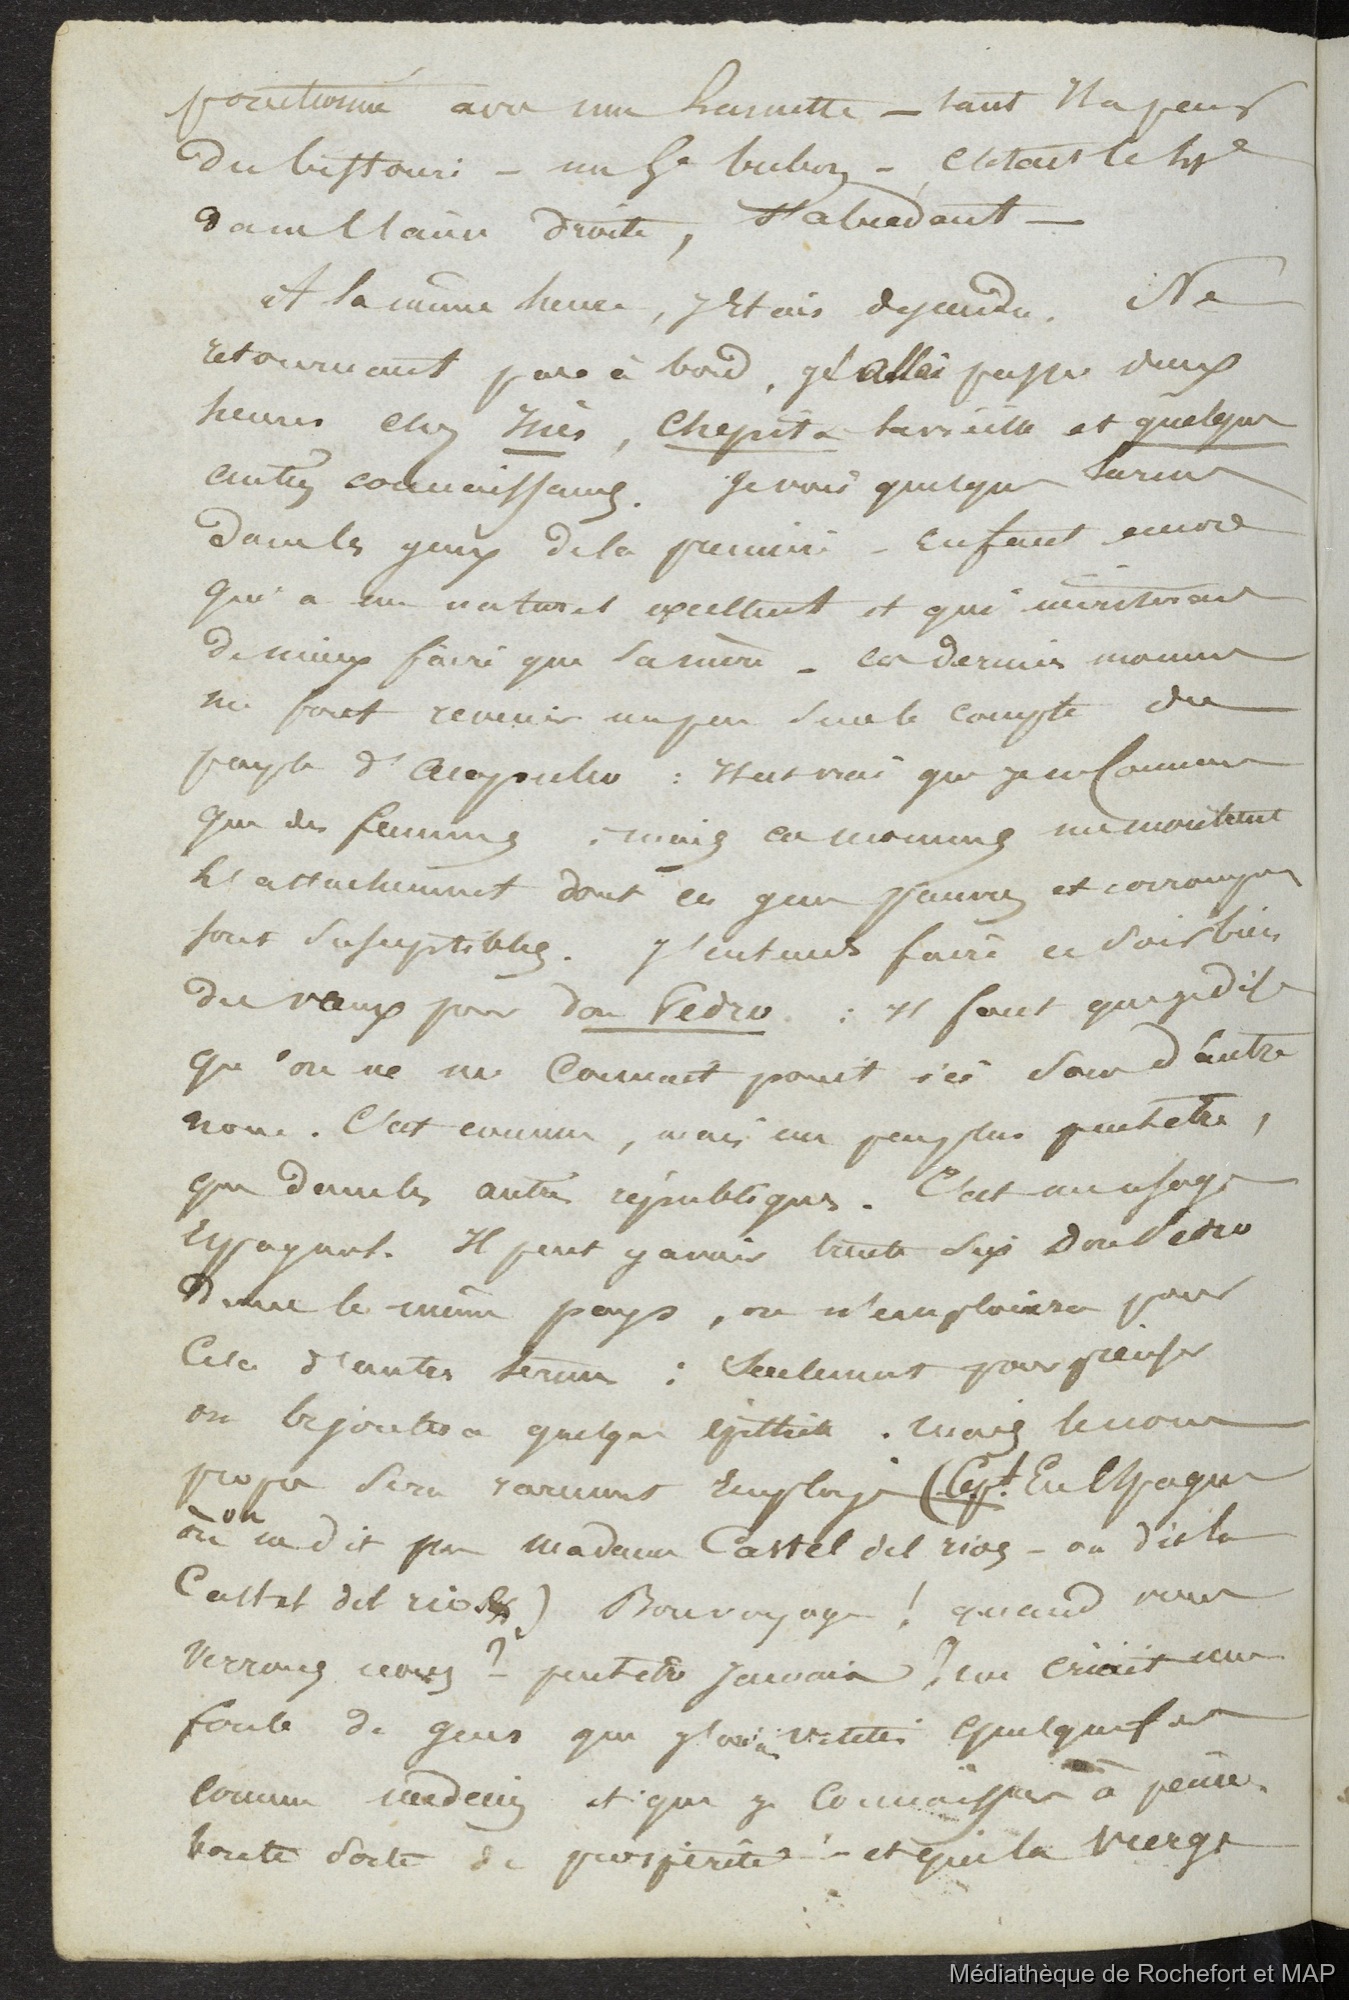 ponctionné avec une lancette – tant Il a peur
du bistouri – un Gd bubon – C'était le
dans l'aine droite, Il
A la même heure, j'étais descendu. Ne
retournant pas à bord, j'allai passer deux
heures chez Inès, Chepita la vieille et quelques
autres connaissances. Je vois quelques larmes
dans les yeux de la première – enfant encore
qui a un naturel excellent et qui mériterait
de mieux faire que sa mère – ces derniers moments
me font revenir un peu sur le compte du
peuple d'Acapulco : Il est vrai que je ne connais
que des femmes : mais ces moments me montrent
l'attachement dont ces gens pauvres et corrompus
sont susceptibles. J'entends faire ce soir bien
des vœux pour don Pedro : Il faut que je dise
qu'on ne me connait point ici sous d'autre
nom. C'est comme, mais un peu plus peut etre,
que dans les autres républiques. C'est un usage
Espagnol. Il peut y avoir trente six Don Pedro
Dans le même pays, on n'emploiera pour
Cela d'autres termes : Seulement pour préciser
on y ajoutera quelque épithète. Mais le nom
propre sera rarement employé (Cept. En Espagne
où on ne dit pas madame Castel del rios – on dit la
Castel del rios) Bon voyage ! quand nous
verrons nous ? – peutetre jamais ? me criait une
foule de gens que j'avais visités quelquefois
comme medecin et que je connaissais à peine.
toute sorte de prospérités ! – et que la vierge
Médiathèque de Rochefort et MAP